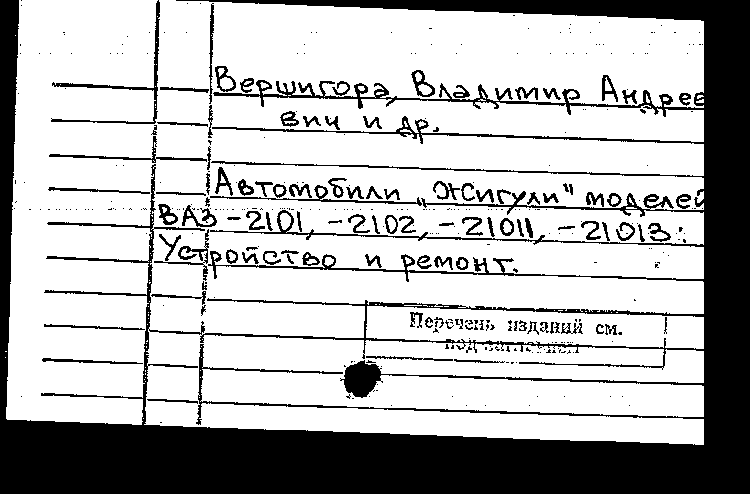 Вершигора, Владимир Андрее
вич и др.
Автомобили „Жигули" моделей
ВАЗ-2101, -2102, -21011, -21013:
Устройство и ремонт.
Перечень изданий см.
под заглавием